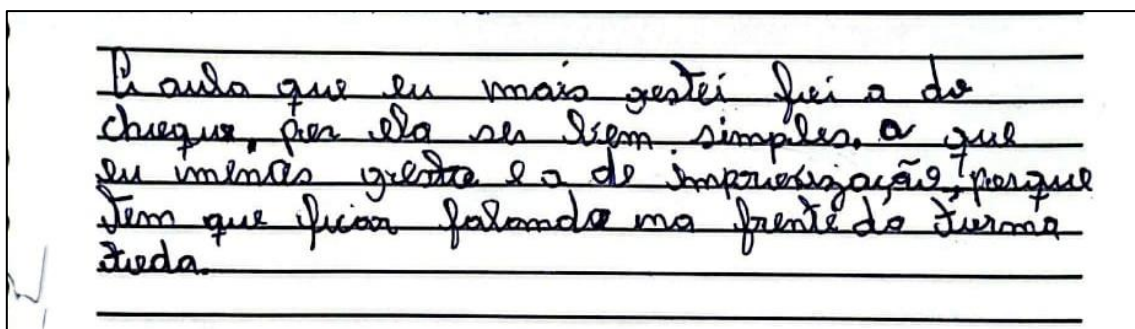 A aula que eu mais gostei foi a do
cheque, por ela ser bem simples. a que
eu menos gosto e a de improvização, porque
tem que ficar falando na frente da turma
toda.